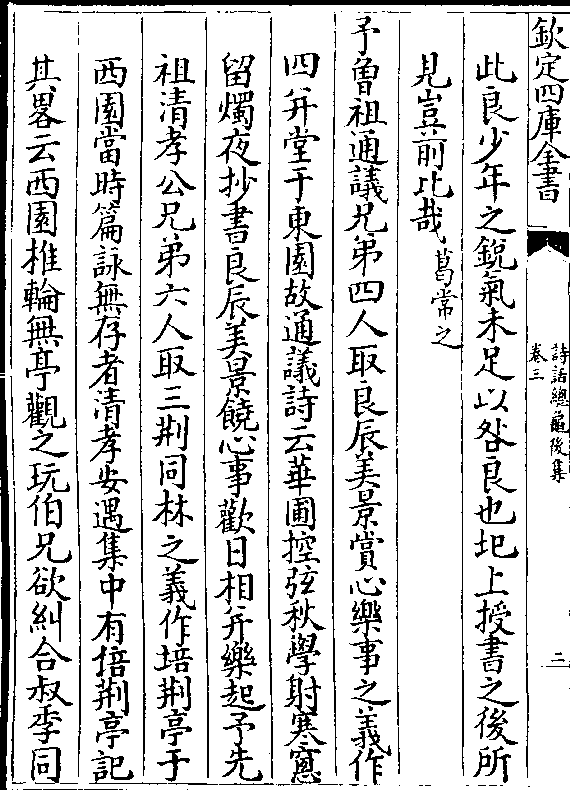 欽定四庫全書
詩話總龜後集
卷三
二
此良少年之銳氣未足以咎良也圯上授書之後所
見豈前比哉葛常之
予魯祖通議兄弟四人取良辰美景賞心樂事之義作
四并堂于東園故通議詩云華圃控弦秋學射寒窓
留燭夜抄書良辰美景饒心事歡日相并樂起予先
祖清孝公兄弟六人取三荆同林之義作培荆亭于
西園當時篇詠無存者清孝安遇集中有培荆亭記
其畧云西園推輪無亭觀之玩伯兄欲糾合叔季同